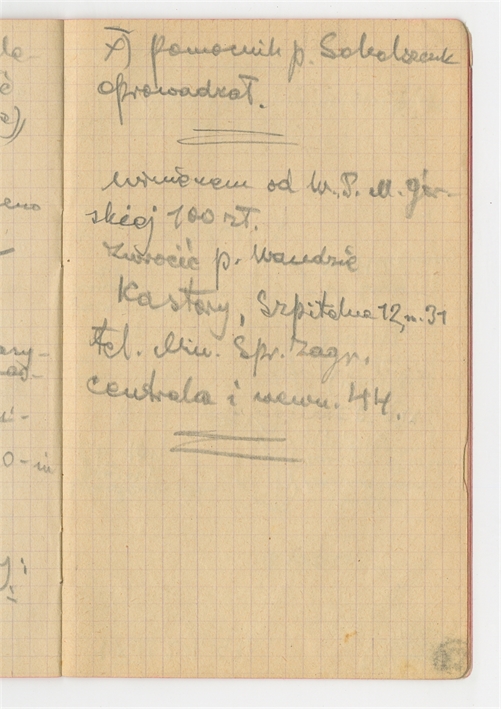 X) pomocnik p. Sokołszczuk
oprowadzał.
winienem od W.P. M. Gór-
skiej 100 zł.
zwrócić p. Wandzie
Kastory, Szpitalna 12, m. 31
tel. Min. Spr. Zagr.
centrala i wewn. 44.